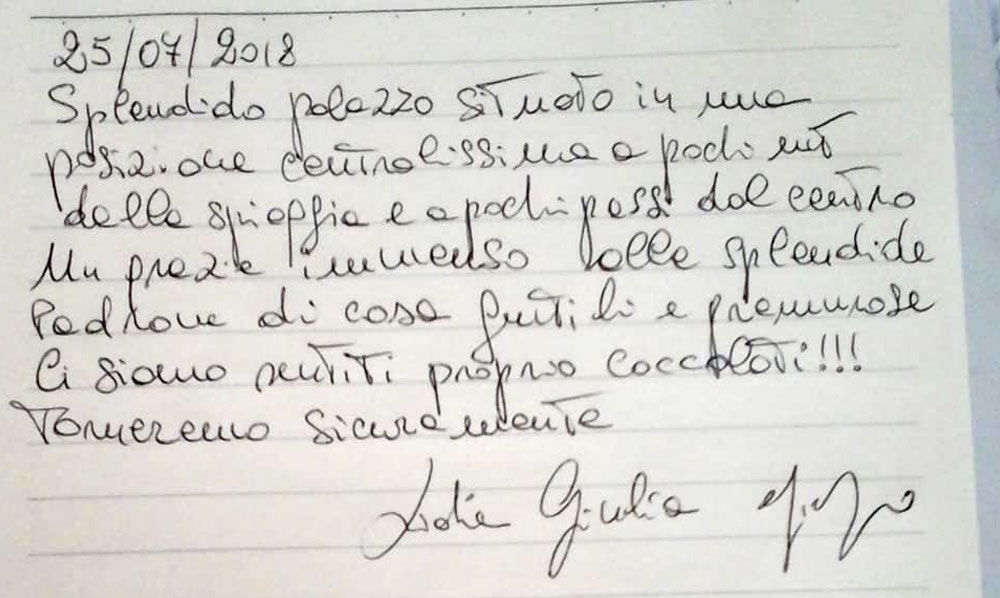 25/07/2018
Splendido palazzo situato in una
posizione centralissima a pochi mt
dalla spiaggia e a pochi passi dal centro
Un grazie immenso alle splendide
Padrone di casa gentili e premurose
Ci siamo sentiti proprio coccolati!!!
Torneremo sicuramente
Giulia